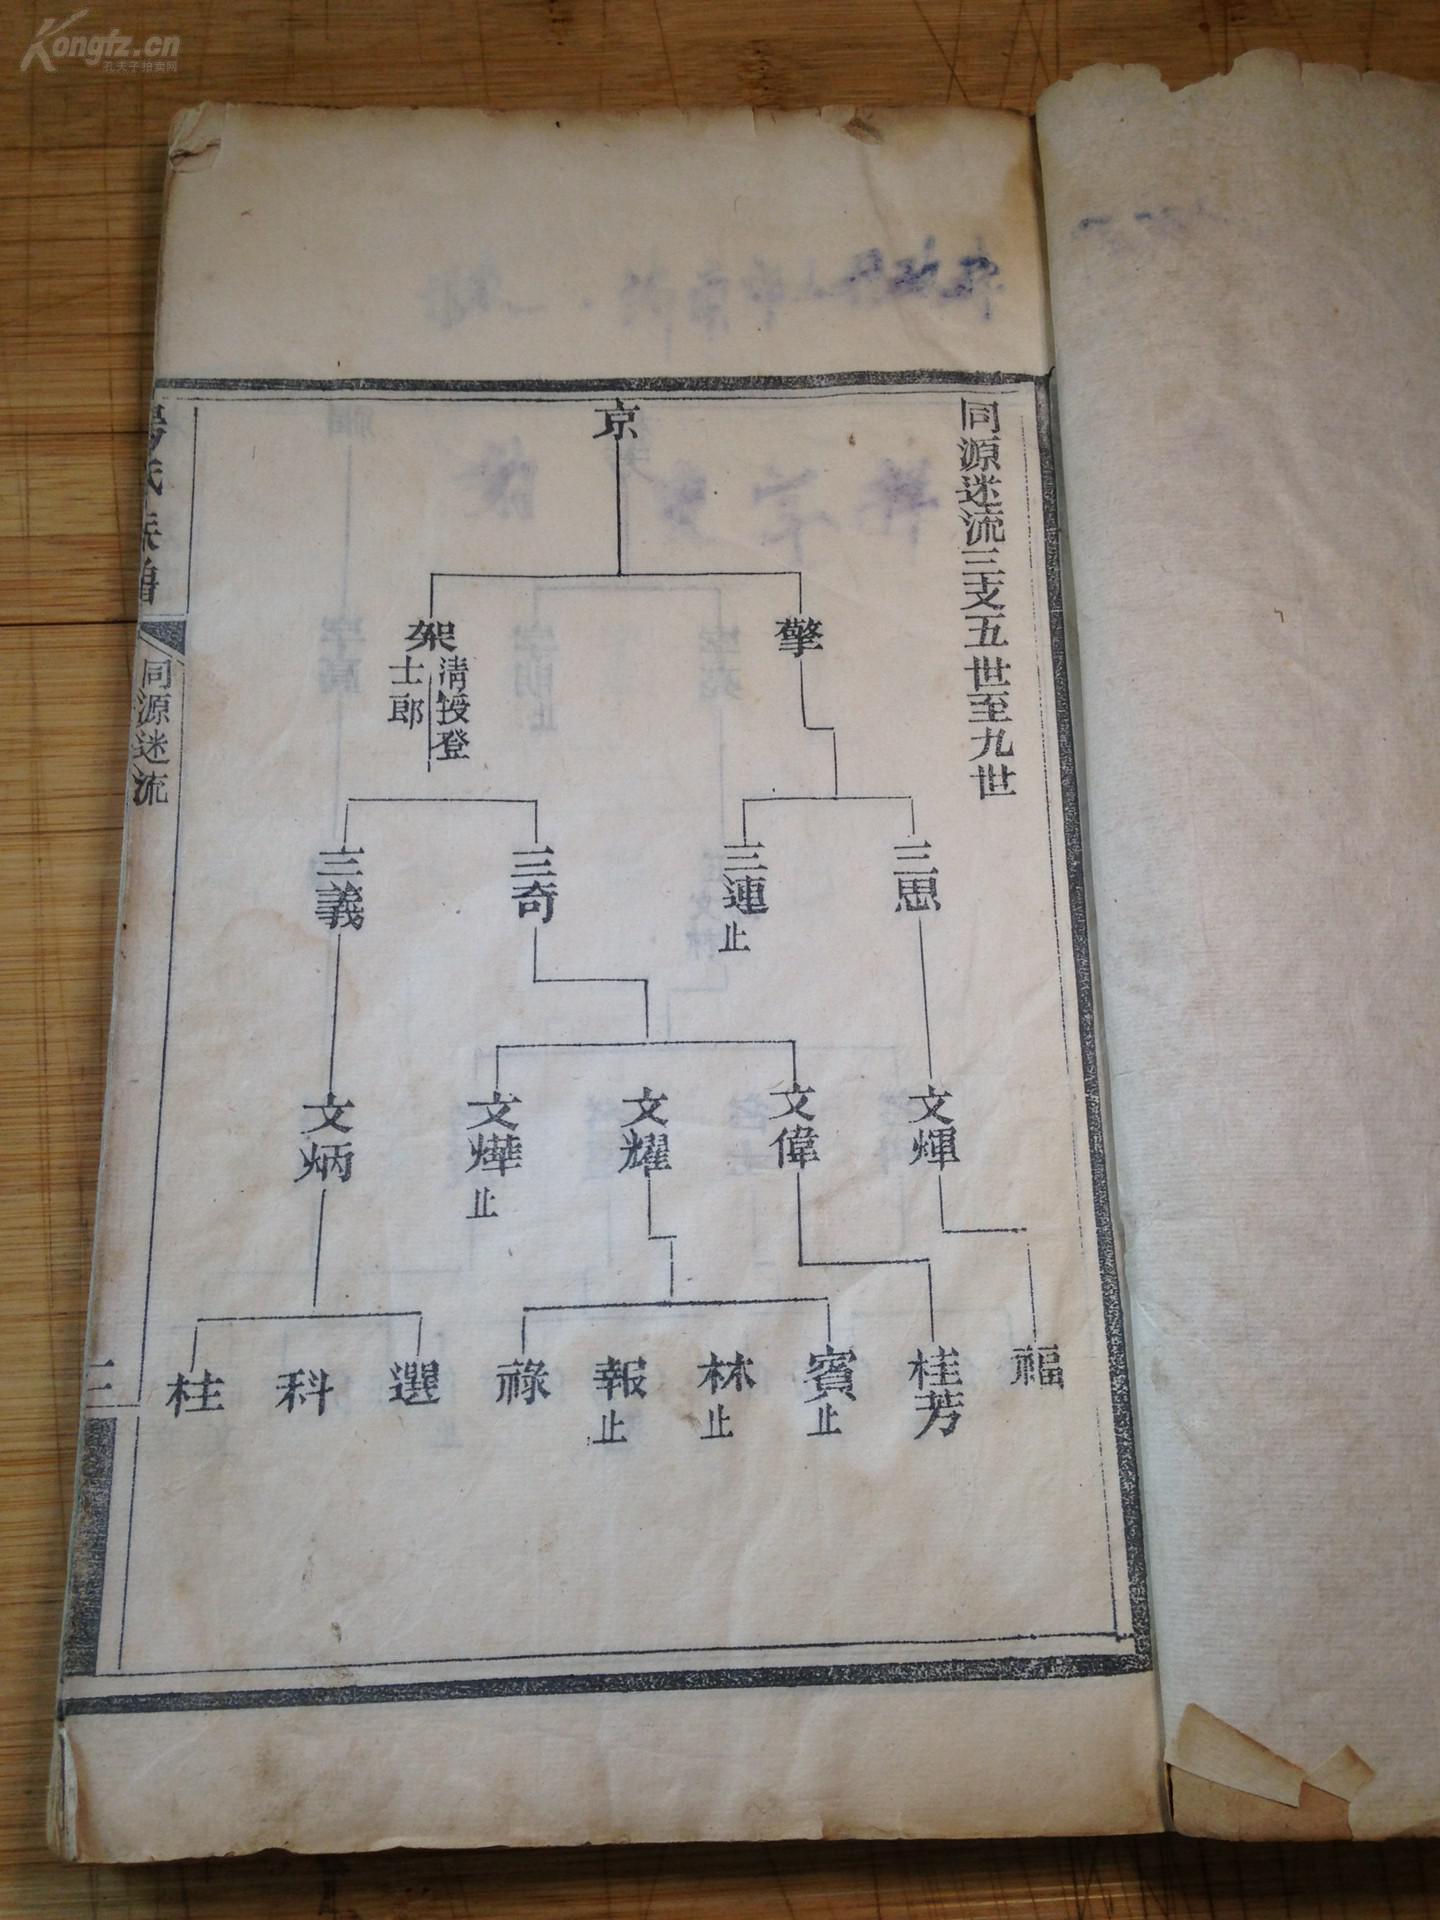 Kongfz.cn
孔夫子拍卖网
同源迷流三支五世至九世
京
擎
架
清授登
士郎
三思
三連
止
三奇
三義
文煇
文偉
文耀
文燁
止
文炳
福
桂芳
賓
止
林
止
報
止
祿
選
科
桂
氏族譜
同源迷流